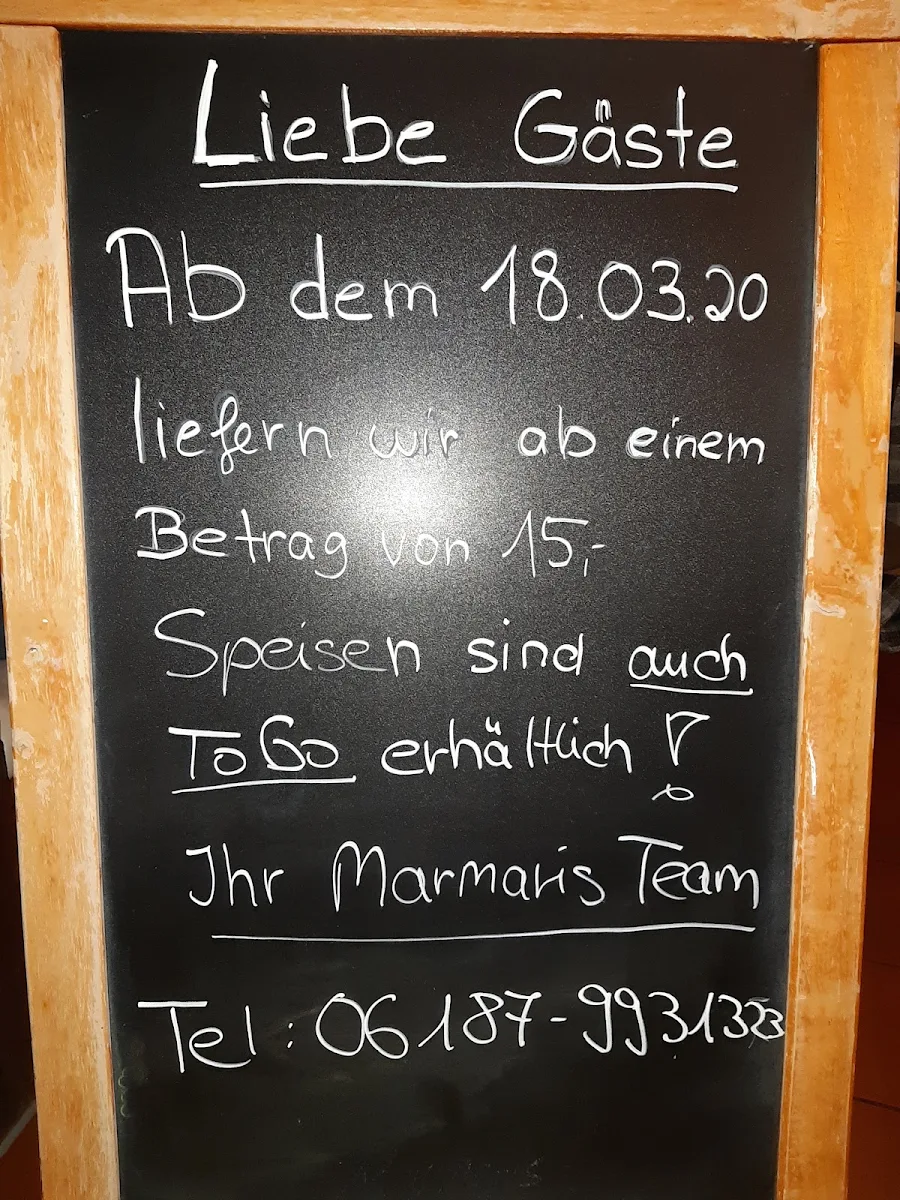 Liebe Gäste
Ab dem 18.03.20
liefern wir ab einem
Betrag von 15,-
Speisen sind auch
ToGo erhältlich !
Ihr Marmaris Team
Tel: 06187-9931323